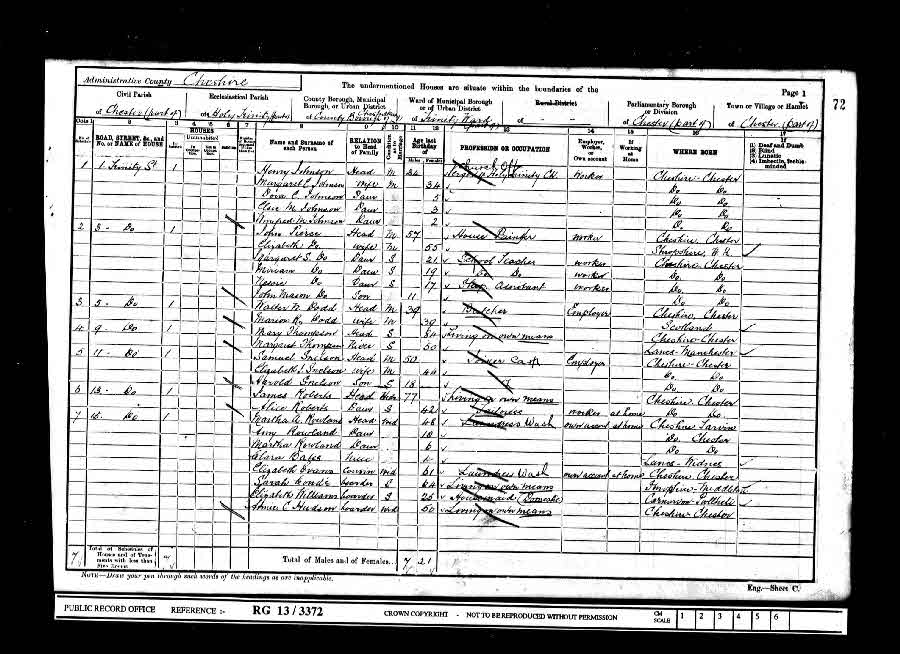 Administrative County Cheshire
The undermentioned Houses are situate within the boundaries of the
Page 1
72
Civil Parish
of Chester (part of)
Ecclesiastical Parish
of Holy Trinity (part)
County Borough, Municipal Borough, or Urban District
of County Borough
Ward of Municipal Borough or of Urban District
of Trinity Ward
Rural District
Parliamentary Borough or Division
of Chester (part of)
Town or Village or Hamlet
of Chester (part of)
Cols 1 2 3 4 5 6 7 8 9 10 11 12 13 14 15 16 17
ROAD, STREET, &c., and No. or NAME of HOUSE
HOUSES
Name and Surname of each Person
RELATION to Head of Family
Condition as to Marriage
Age last Birthday of
Males Females
PROFESSION OR OCCUPATION
Employer, Worker, or Own account
If Working at Home
WHERE BORN
(1) Deaf and Dumb
(2) Blind
(3) Lunatic
(4) Imbecile, feeble-minded
1 1 Trinity St 1 Henry Johnson Head M 34 Holy Trinity Ch. Worker Cheshire Chester
Margaret E Johnson Wife M 34 Do Do
Johnson Daur 5 Do Do
M Johnson Daur 3 Do Do
Winifred M Johnson Daur 2 Do Do
2 3 Do 1 John Pierce Head M 57 House Painter Worker Cheshire, Chester
Elizabeth Do Wife M 55 Shropshire,
Margaret S. Do Daur S 21 School Teacher worker Cheshire Chester
Miriam Do Daur S 19 Do Do worker Do. Do
Do Daur S 17 Shop Assistant worker Do. Do
John Mason Do Son 11 Do Do
3 5 Do 1 Walter N. Dodd Head M 39 Butcher Employer Cheshire, Chester
Marion R. Dodd Wife M 39 Scotland
4 9 Do 1 Mary Thompson Head S 84 Living on own means Cheshire Chester
Margaret Thompson Niece S 50 Lancs Manchester
5 11 Do 1 Samuel Snelson Head M 50 Employer Cheshire Chester
Elizabeth J Snelson Wife M 46 Do. Do
Harold Snelson Son S 18 Do Do
6 13 Do 1 James Roberts Head 77 Living on own means Cheshire Chester
Alice Roberts Daur S 42 worker at home Do Do
7 15 Do 1 Martha A. Rowland Head Wid 48 Laundress Wash own account at home Cheshire Tarvin
Amy Rowland Daur 18 Do. Chester
Martha Rowland Daur 6 Do Do
Clara Bates Niece Lancs. Widnes
Elizabeth Evans Cousin Wid 61 Laundress Wash own account at home Cheshire Chester
Sarah boarder S 64 Living on own means
Elizabeth Williams boarder S 25 Housemaid (Domestic) Carnarvon
Annie E Hudson boarder Wid 50 Living on own means Cheshire Chester
7 Total of Schedules of Houses and of Tenements with less than Five Rooms 7
Total of Males and of Females... 7 21
NOTE—Draw your pen through such words of the headings as are inapplicable.
Eng.—Sheet C.
PUBLIC RECORD OFFICE REFERENCE :- RG 13/3372
CROWN COPYRIGHT - NOT TO BE REPRODUCED WITHOUT PERMISSION
CM SCALE 1 2 3 4 5 6